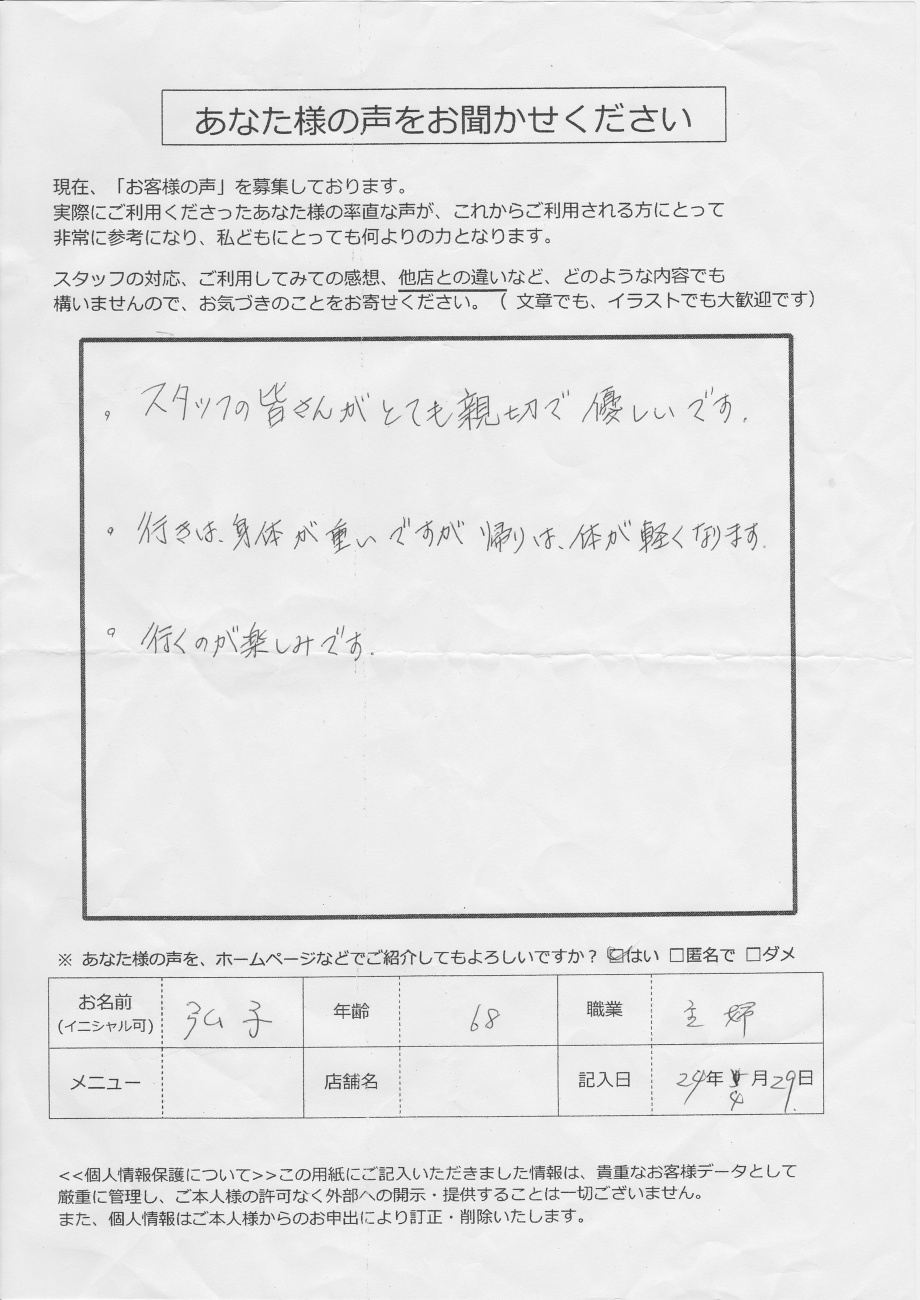 あなた様の声をお聞かせください
現在、「お客様の声」を募集しております。
実際にご利用くださったあなた様の率直な声が、これからご利用される方にとって
非常に参考になり、私どもにとっても何よりの力となります。
スタッフの対応、ご利用してみての感想、他店との違いなど、どのような内容でも
構いませんので、お気づきのことをお寄せください。（ 文章でも、イラストでも大歓迎です）
。スタッフの皆さんがとても親切で優しいです.
。行きは、身体が重いですが帰りは、体が軽くなります.
。行くのが楽しみです.
※ あなた様の声を、ホームページなどでご紹介してもよろしいですか？ ☑はい □匿名で □ダメ
お名前 (イニシャル可) 弘子 年齢 68 職業 主婦
メニュー 店舗名 記入日 24年 4月29日
<<個人情報保護について>>この用紙にご記入いただきました情報は、貴重なお客様データとして
厳重に管理し、ご本人様の許可なく外部への開示・提供することは一切ございません。
また、個人情報はご本人様からのお申出により訂正・削除いたします。